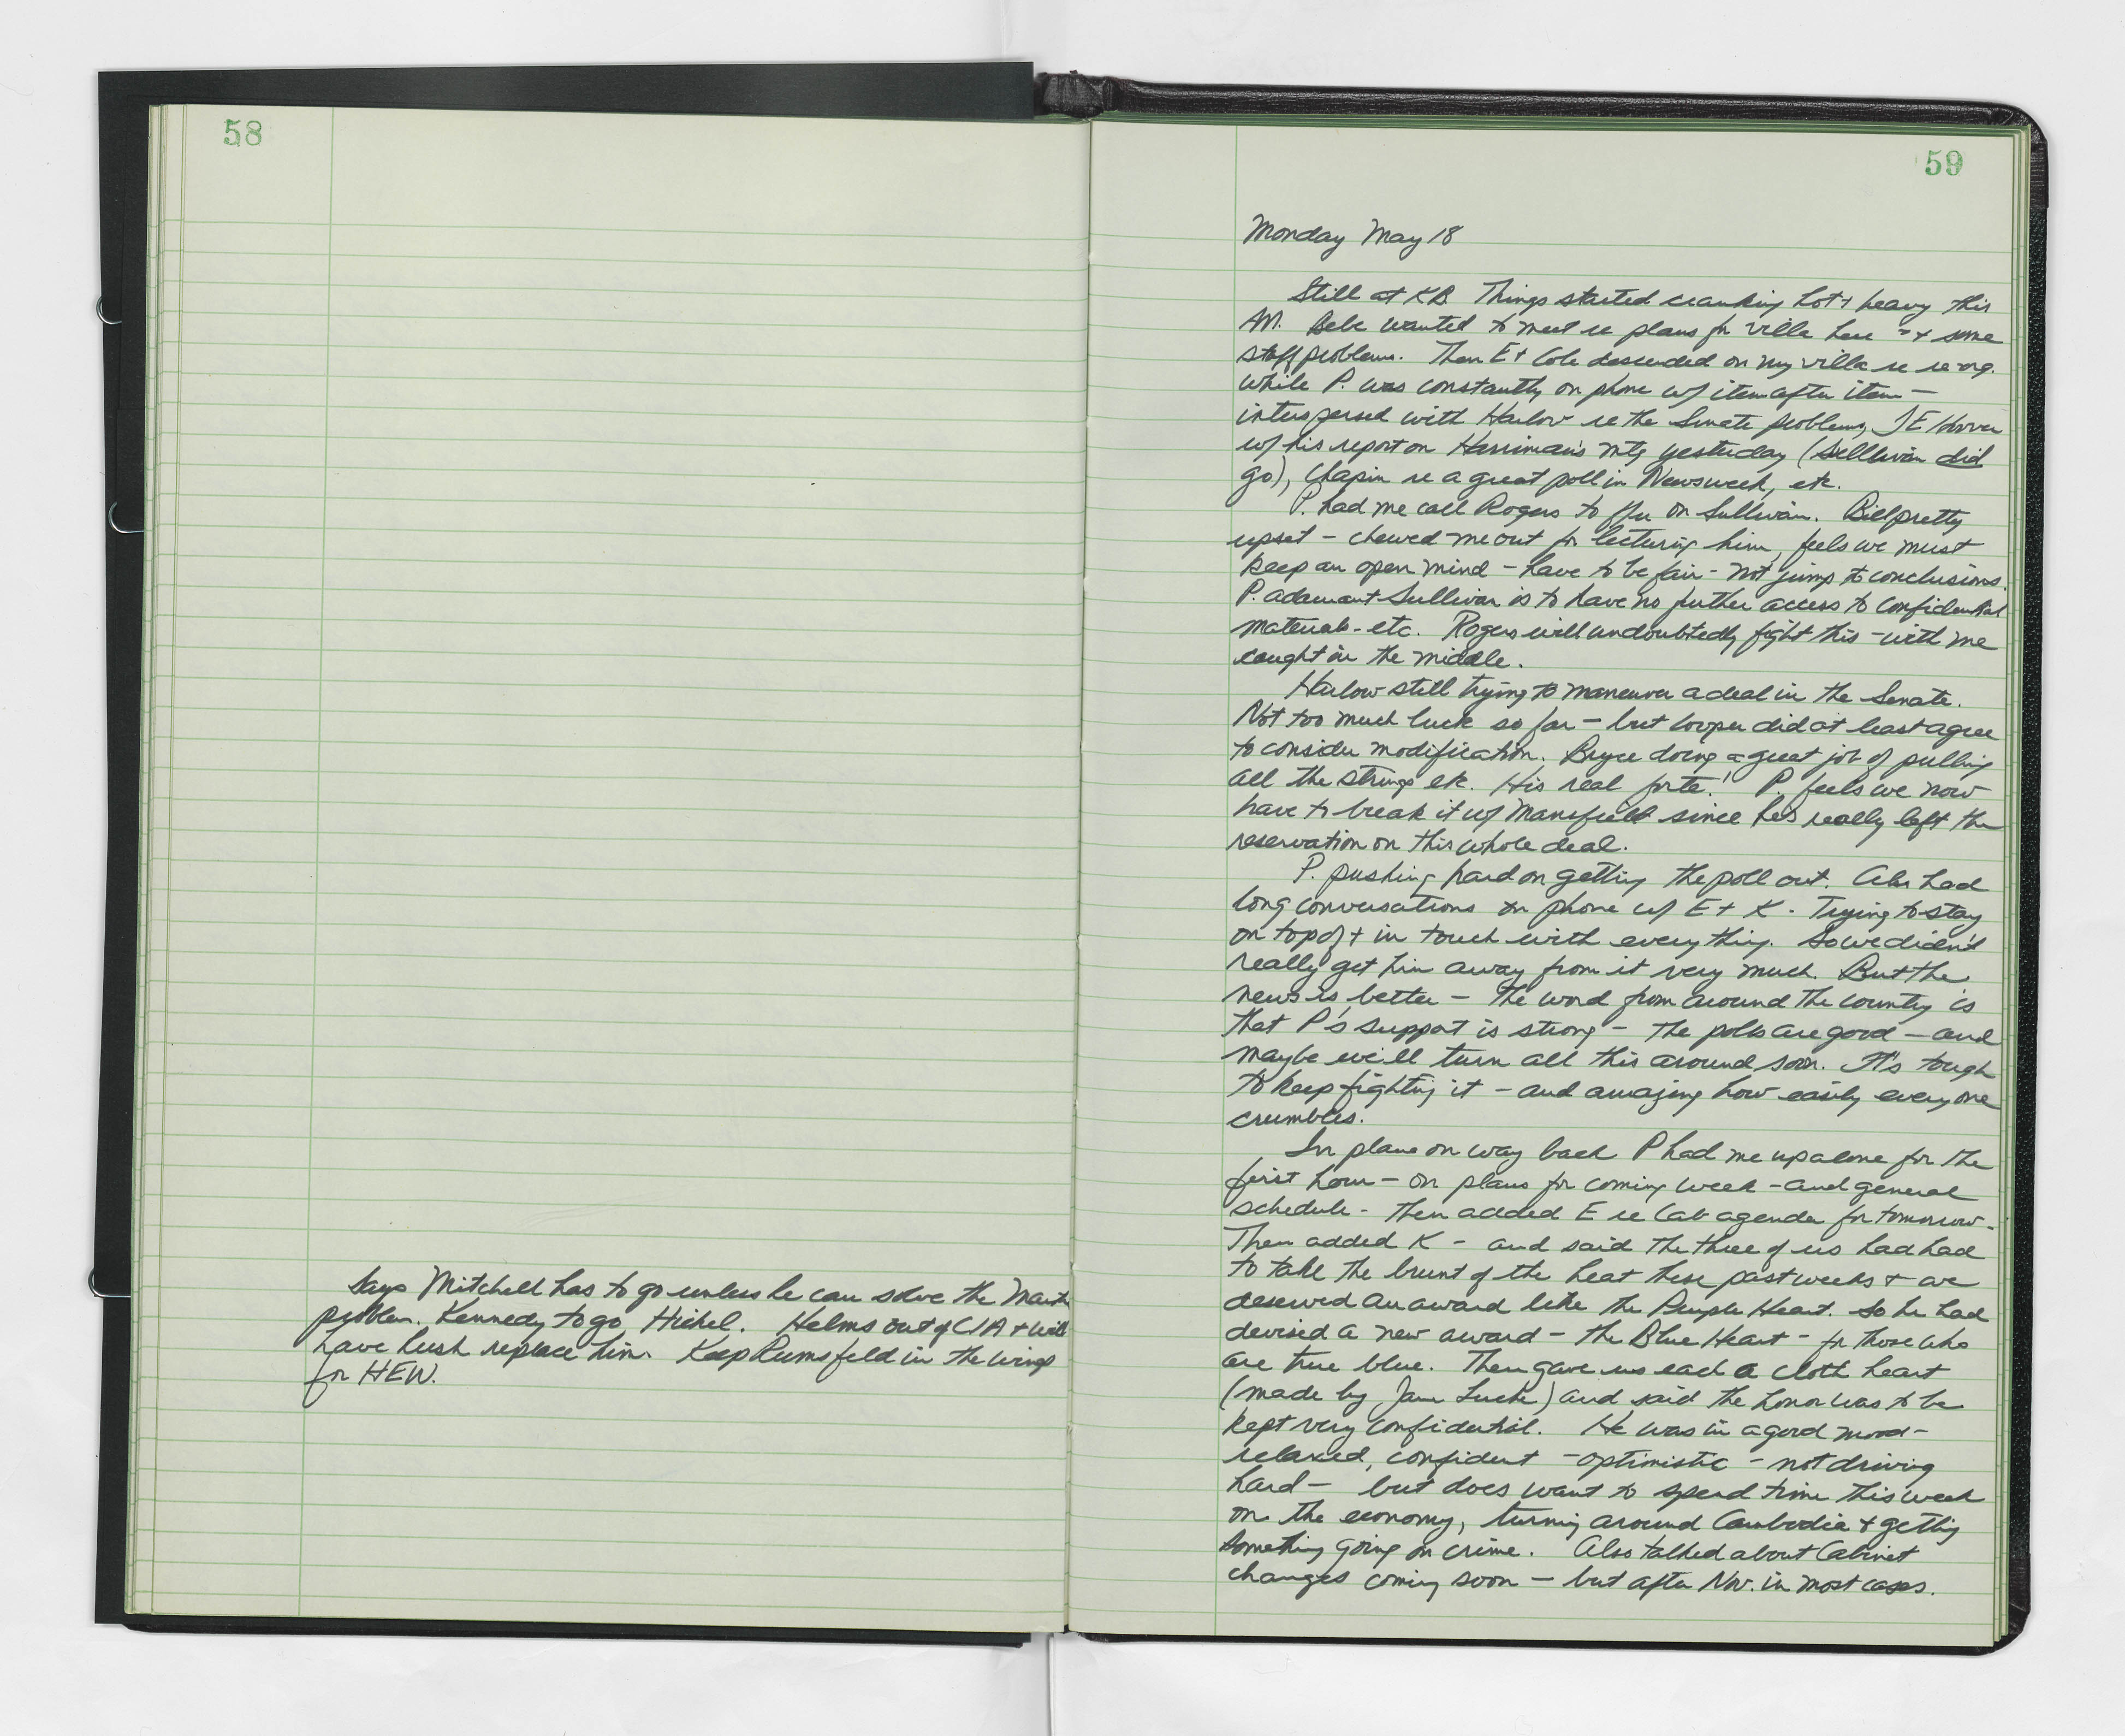 58
Says Mitchell has to go unless he can solve the
problem. Kennedy to go Hickel. Helms out of CIA + will
have Cush replace him. Keep Rumsfeld in the wings
for HEW.
59
Monday May 18
Still at KB. Things started cranking hot + heavy this
AM. Bebe wanted to meet re plans for villa here + some
staff problems. Then E + Cole descended on my villa re reorg.
while P. was constantly on phone w/ item after item —
interspersed with Harlow re the Senate problems, J E Hoover
w/ his report on Harriman's mtg yesterday (Sullivan did
go), Chapin re a great poll in Newsweek, etc.
P. had me call Rogers to ffu on Sullivan. Bill pretty
upset - chewed me out for lecturing him, feels we must
keep an open mind - have to be fair - not jump to conclusions.
P. adamant Sullivan is to have no further access to confidential
materials - etc. Rogers will undoubtedly fight this - with me
caught in the middle.
Harlow still trying to maneuver a deal in the Senate.
Not too much luck so far - but Cooper did at least agree
to consider modification. Bryce doing a great job of pulling
all the strings etc. His real forte! P. feels we now
have to break it w/ Mansfield since he's really left the
reservation on this whole deal.
P. pushing hard on getting the poll out. Also had
long conversations on phone w/ E + K - Trying to stay
on top of + in touch with everything. So we didn't
really get him away from it very much. But the
news is better - the word from around the country is
that P's support is strong - the polls are good - and
maybe we'll turn all this around soon. It's tough
to keep fighting it - and amazing how easily everyone
crumbles.
In plane on way back P had me up alone for the
first hour - on plans for coming week - and general
schedule - then added E re Cab agenda for tomorrow -
Then added K - and said the three of us had had
to take the brunt of the heat these past weeks + we
deserved an award like the Purple Heart. So he had
devised a new award - the Blue Heart - for those who
are true blue. Then gave us each a cloth heart
(made by Jane Lucke) and said the honor was to be
kept very confidential. He was in a good mood -
relaxed, confident - optimistic - not driving
hard - but does want to spend time this week
on the economy, turning around Cambodia + getting
something going on crime. Also talked about Cabinet
changes coming soon - but after Nov. in most cases.